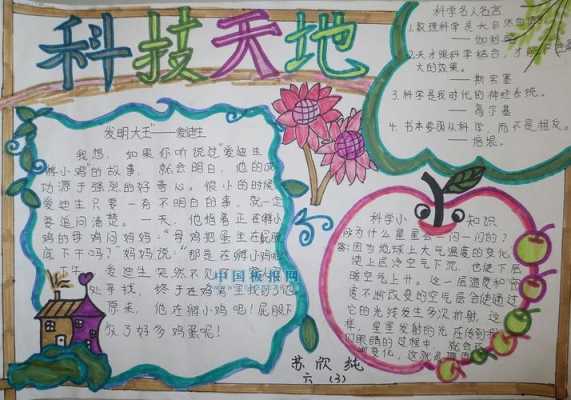 科技天地
发明大王"——爱迪生
我想，如果你听说过"爱迪生
孵小鸡"的故事，就会明白，他的成
功源于强烈的好奇心。很小的时候
爱迪生只要一有不明白的事，就一定
要追问清楚。一天，他指着正在孵小
鸡的母鸡问妈妈："母鸡把蛋坐在屁股
底下干吗？"妈妈说："那是在孵小鸡呢
爱迪生突然不见了
处寻找，终于在鸡窝里找到了他
原来，他在孵小鸡呢！屁股下
放了好多鸡蛋呢！
中国板报网
科学名人名言
1.数理科学是大自然
——伽利略
2.天才跟科学结合，才
大的效果。
——斯宾塞
3.科学是我时代的神经系统。
——高尔基
4.书本要跟从科学，而不是相反。
——培根。
科学小知识
问为什么星星会一闪一闪的？
答：因为地球上大气温度的变化
使上层冷空气下沉，也使下层
暖空气上升。这一层温度和密
度不断改变的空气层会使通过
它的光线发生多次折射，这
样，星星发射的光在传到我
们眼睛的过程中，就会
变化，这就
苏欣纯
六（3）